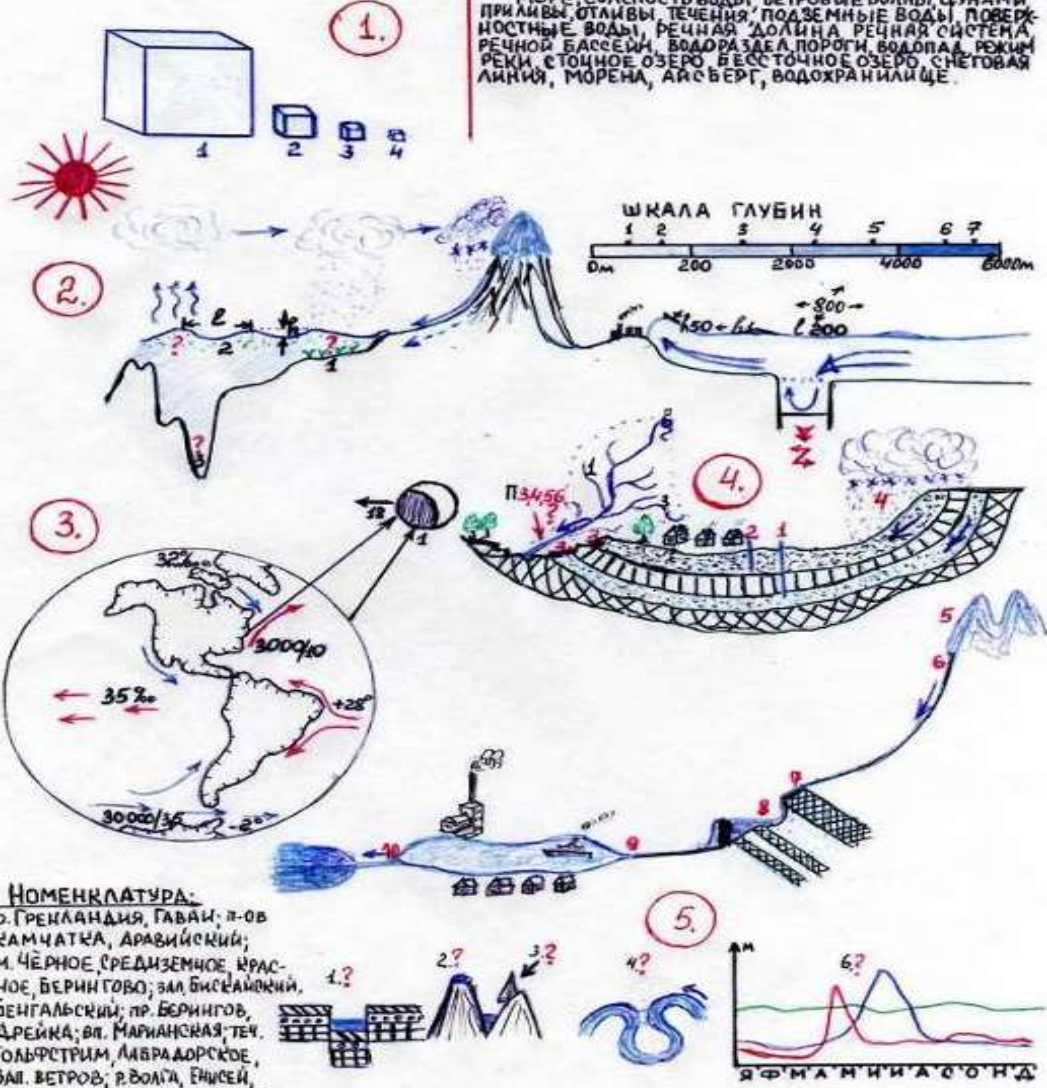 ПРИЛИВЫ, ОТЛИВЫ, ТЕЧЕНИЯ, ПОДЗЕМНЫЕ ВОДЫ, ПОВЕРХ-
НОСТНЫЕ ВОДЫ, РЕЧНАЯ ДОЛИНА РЕЧНАЯ СИСТЕМА,
РЕЧНОЙ БАССЕЙН, ВОДОРАЗДЕЛ, ПОРОГИ, ВОДОПАД, РЕЖИМ
РЕКИ, СТОЧНОЕ ОЗЕРО, БЕССТОЧНОЕ ОЗЕРО, СНЕГОВАЯ
ЛИНИЯ, МОРЕНА, АЙСБЕРГ, ВОДОХРАНИЛИЩЕ.
1.
1 2 3 4
ШКАЛА ГЛУБИН
1 2 3 4 5 6 7
0м 200 2000 4000 6000м
2.
? ? ?
l 2 h 1
h50 h1 l 200
800
3.
18 1
32‰
3000/10
35‰
+28°
30000/35 -2°
4.
П3,4,5,6
?
1 3 2 1 4
5
6
7
8
9
10
НОМЕНКЛАТУРА:
О. ГРЕНЛАНДИЯ, ГАВАИ; П-ОВ
КАМЧАТКА, АРАВИЙСКИЙ;
М. ЧЁРНОЕ, СРЕДИЗЕМНОЕ, КРАС-
НОЕ, БЕРИНГОВО; ЗАЛ. БИСКАЙСКИЙ,
БЕНГАЛЬСКИЙ; ПР. БЕРИНГОВ,
ДРЕЙКА; ВП. МАРИАНСКАЯ; ТЕЧ.
ГОЛЬФСТРИМ, ЛАБРАДОРСКОЕ,
ЗАП. ВЕТРОВ; Р. ВОЛГА, ЕНИСЕЙ,
5.
1.? 2.? 3.? 4.? 6.?
М
Я Ф М А М И И А С О Н Д